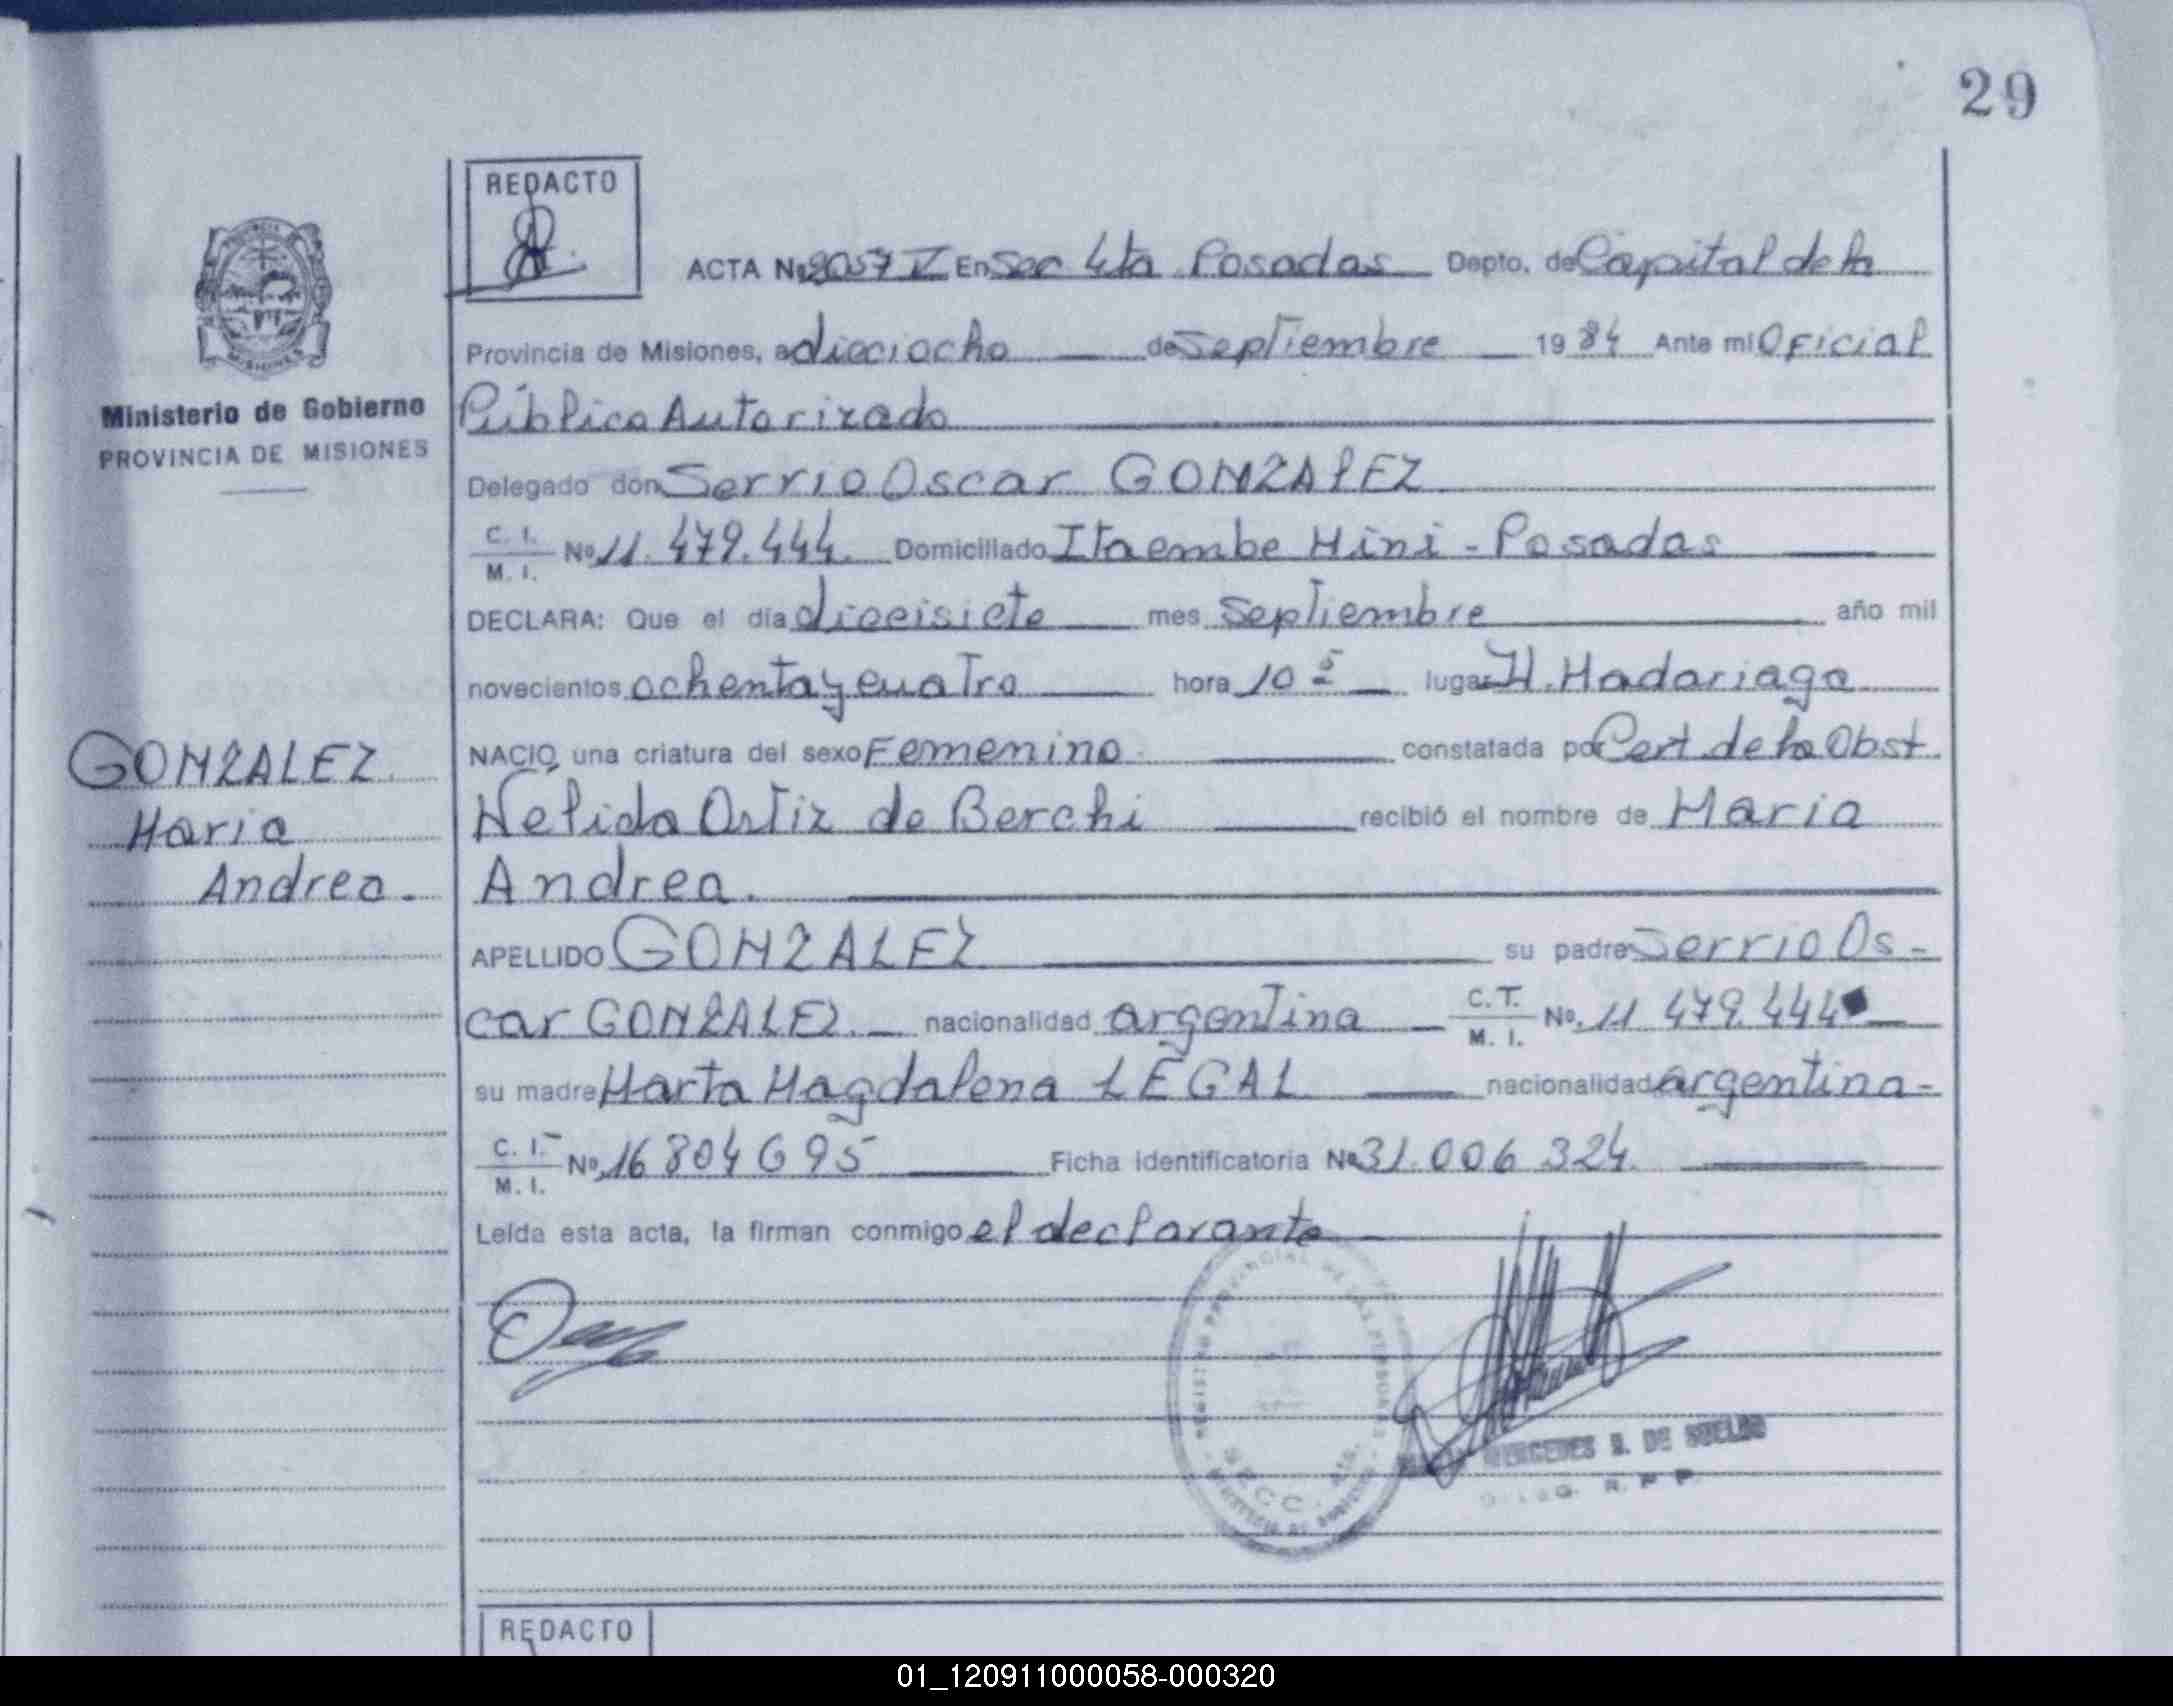 29
REDACTO
ACTA Nº 2057 V En Sec 4ta Posadas Depto. de Capital de la
Provincia de Misiones, a dieciocho de Septiembre 1984 Ante mi Oficial
Público Autorizado
Ministerio de Gobierno
PROVINCIA DE MISIONES
Delegado don Serrio Oscar GONZALEZ
C. I. / M. I. Nº 11.479.444. Domiciliado Itaembe Mini - Posadas
DECLARA: Que el día diecisiete mes Septiembre año mil
novecientos ochenta y cuatro hora 10 5 lugar H. Madariaga
NACIO una criatura del sexo Femenino constatada por Cert de la Obst
Nélida Ortiz de Berchi recibió el nombre de Maria
Andrea.
GONZALEZ
Maria
Andrea.
APELLIDO GONZALEZ su padre Serrio Os-
car GONZALEZ. nacionalidad argentina C.T. / M. I. Nº. 11 479.444
su madre Marta Magdalena LEGAL nacionalidad argentina -
C. I. / M. I. Nº. 16 804 695 Ficha Identificatoria Nº 31.006 324.
Leída esta acta, la firman conmigo el declarante
REGISTRO PROVINCIAL DE LAS PERSONAS
SECC. 4ta.
MINISTERIO DE GOBIERNO
MERCEDES B. DE SUELDO
R. P. P.
REDACTO
01_120911000058-000320